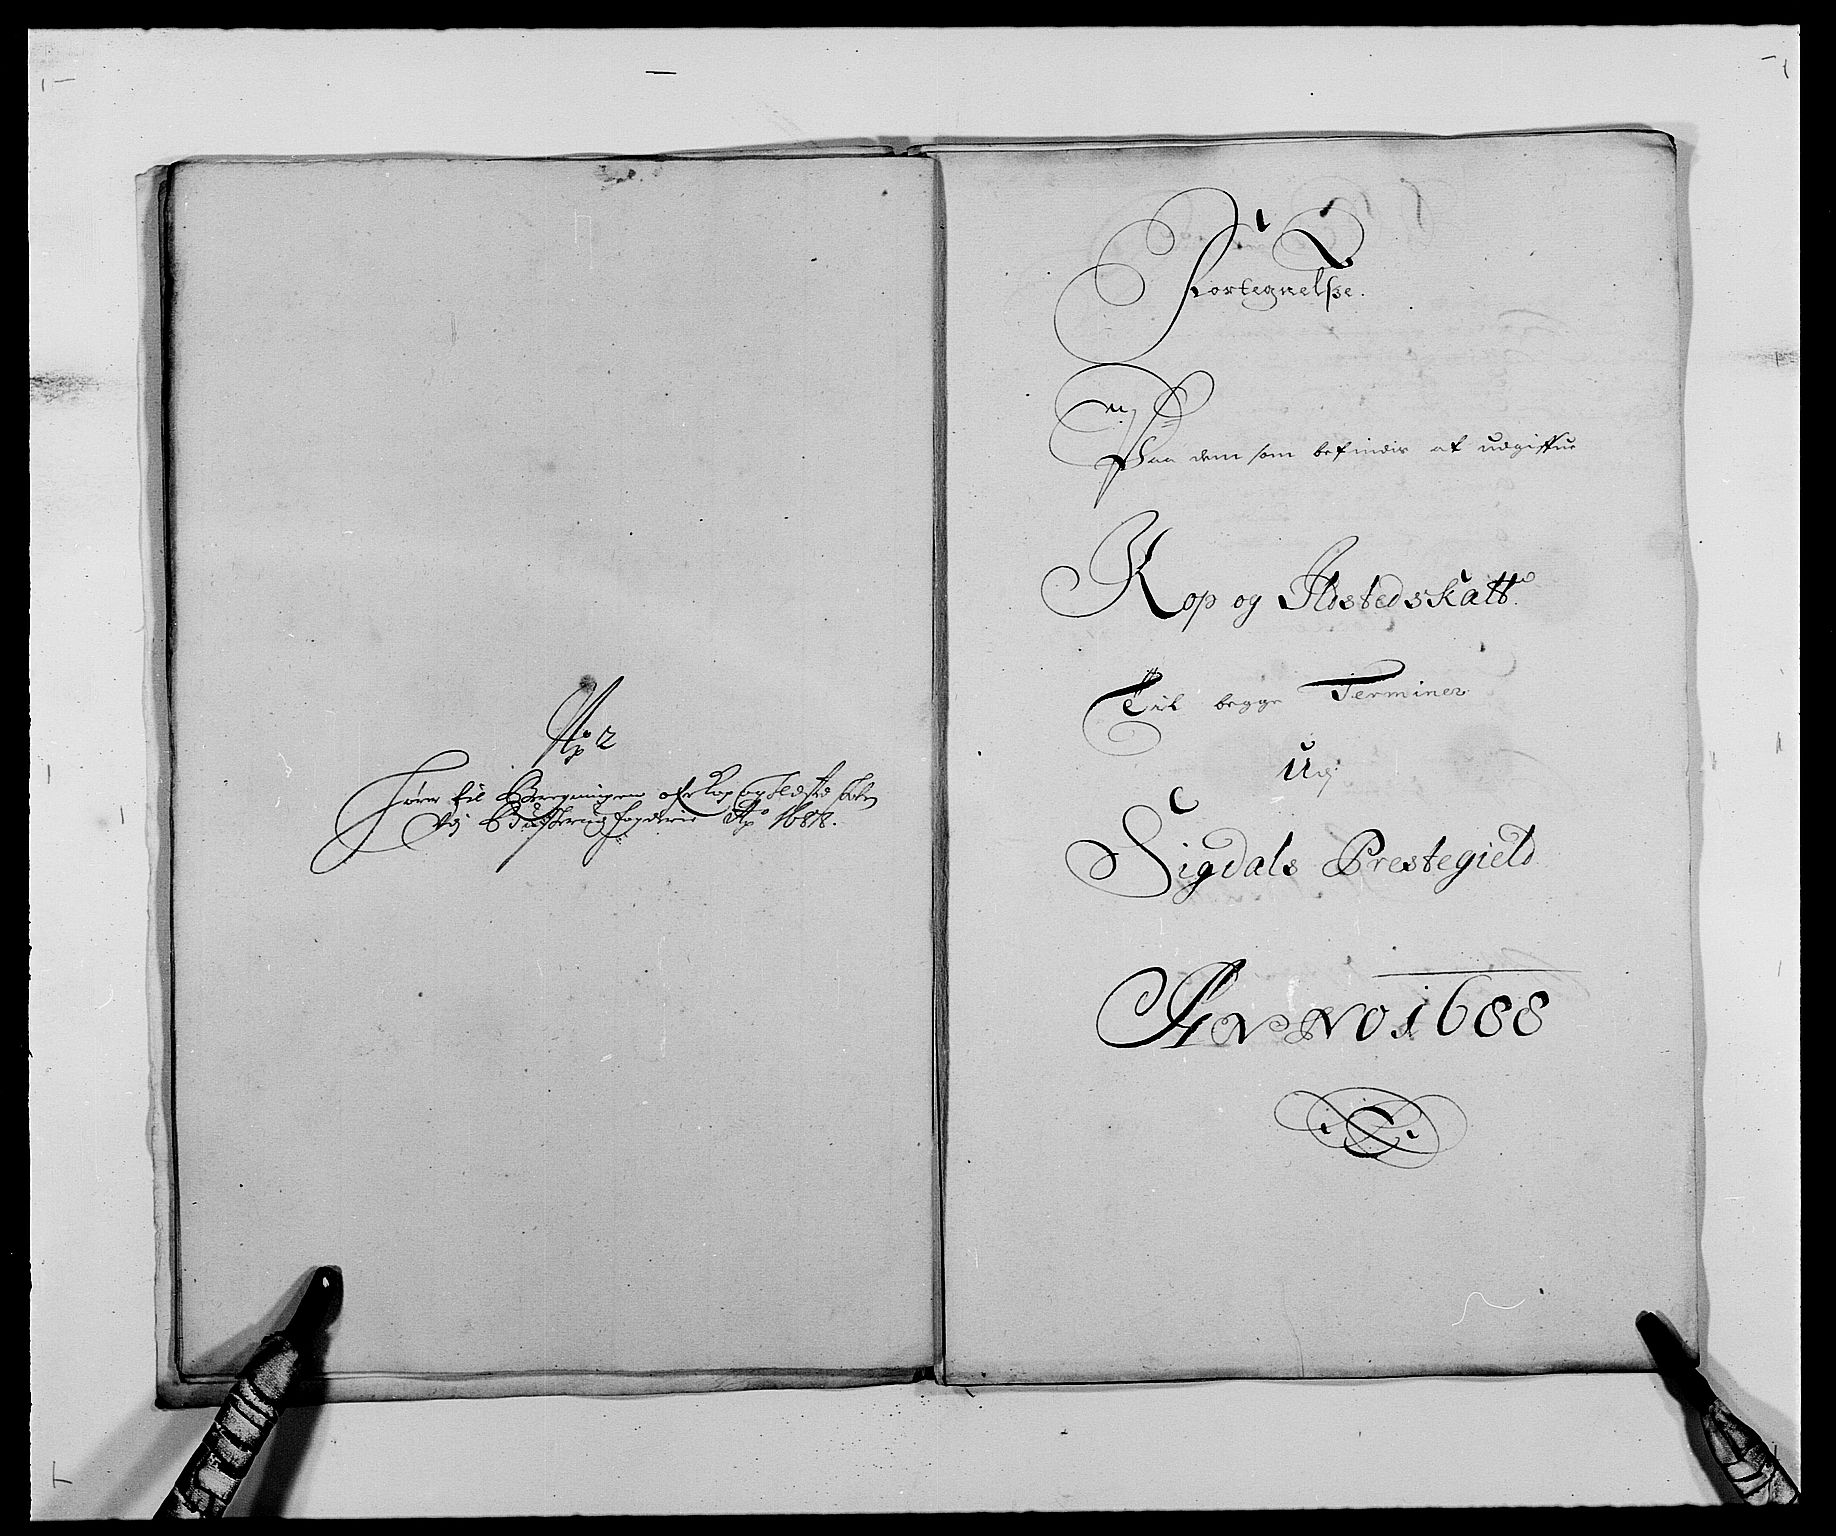 No 2
Hører til Beregningen ofr Kop og Ildste skatn
Udj Buscherud fogderie Ao 1688.
Fortegnelsse.
Paa dem som befindis at udgiffue
Kop og Ildstedskatt
Til begge Terminer
Udj
Sigdals Prestegield
ANNO 1688